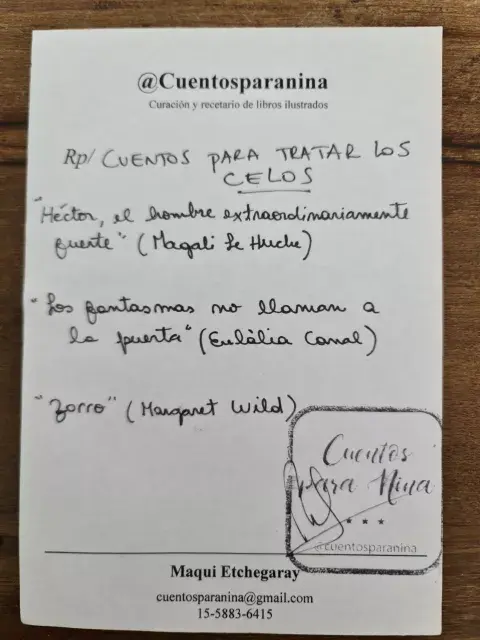 @Cuentosparanina
Curación y recetario de libros ilustrados
Rp/ CUENTOS PARA TRATAR LOS
CELOS
"Héctor, el hombre extraordinariamente
fuerte" (Magali Le Huche)
"Los fantasmas no llaman a
la puerta" (Eulàlia Canal)
"Zorro" (Margaret Wild)
Cuentos
para Nina
@cuentosparanina
Maqui Etchegaray
cuentosparanina@gmail.com
15-5883-6415